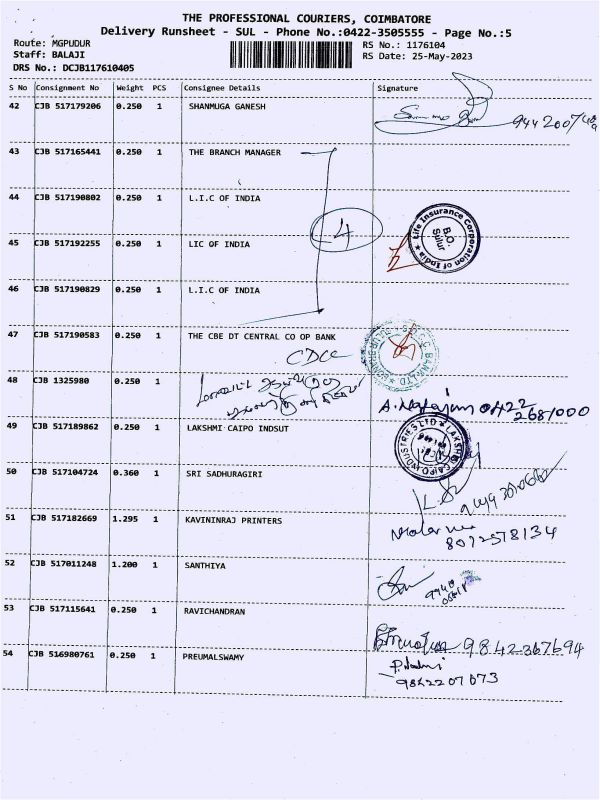 THE PROFESSIONAL COURIERS, COIMBATORE
Delivery Runsheet - SUL - Phone No.:0422-3505555 - Page No.:5
Route: MGPUDUR
Staff: BALAJI
DRS No.: DCJB117610405
RS No.: 1176104
RS Date: 25-May-2023
S No Consignment No Weight PCS Consignee Details Signature
42 CJB 517179206 0.250 1 SHANMUGA GANESH
43 CJB 517165441 0.250 1 THE BRANCH MANAGER
44 CJB 517190802 0.250 1 L.I.C OF INDIA
Life Insurance Corporation of India
B.O.
Sulur
4
45 CJB 517192255 0.250 1 LIC OF INDIA
46 CJB 517190829 0.250 1 L.I.C OF INDIA
47 CJB 517190583 0.250 1 THE CBE DT CENTRAL CO OP BANK
CDCC
48 CJB 1325980 0.250 1
0422
2681000
49 CJB 517189862 0.250 1 LAKSHMI CAIPO INDSUT
50 CJB 517104724 0.360 1 SRI SADHURAGIRI
51 CJB 517182669 1.295 1 KAVININRAJ PRINTERS
8072578134
52 CJB 517011248 1.200 1 SANTHIYA
53 CJB 517115641 0.250 1 RAVICHANDRAN
9842367694
54 CJB 516980761 0.250 1 PREUMALSWAMY
9842207073